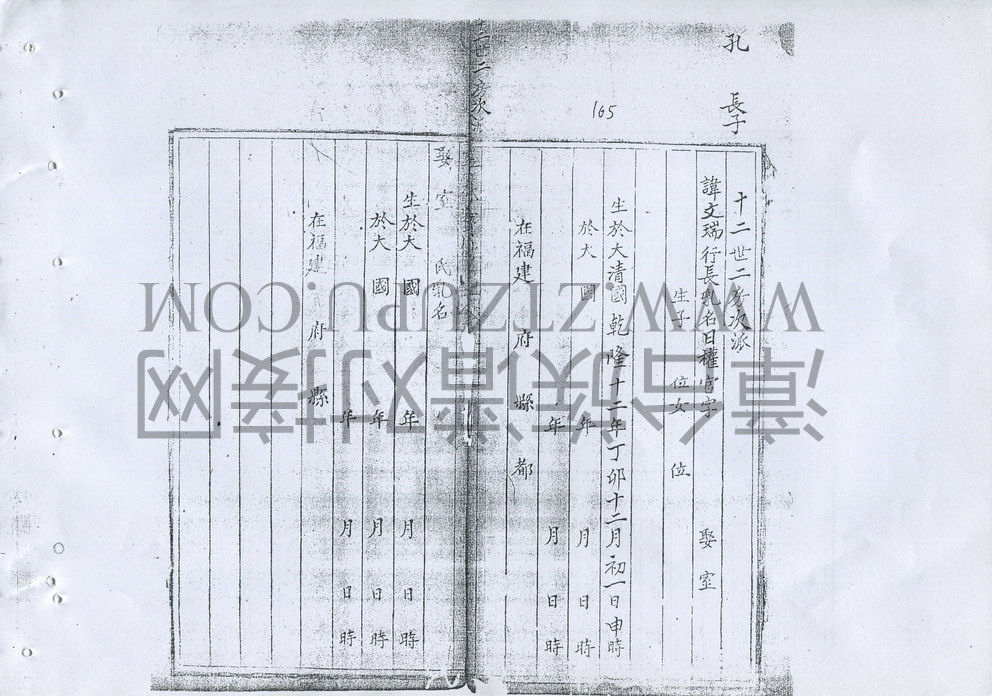 孔 長子
165
十二世二房次派
諱文瑞行長乳名日權官字 娶室
生子 位女 位
生於大清國乾隆十二年丁卯十二月初一日申時
於大 國 年 月 日時
年 月 日時
在福建 府 縣 都
十二世二房次
娶室 氏乳名
生於大 國 年 月 日時
於大 國 年 月 日時
年 月 日時
在福建 府 縣
WWW.ZTZUPU.COM
漳台族谱对接网